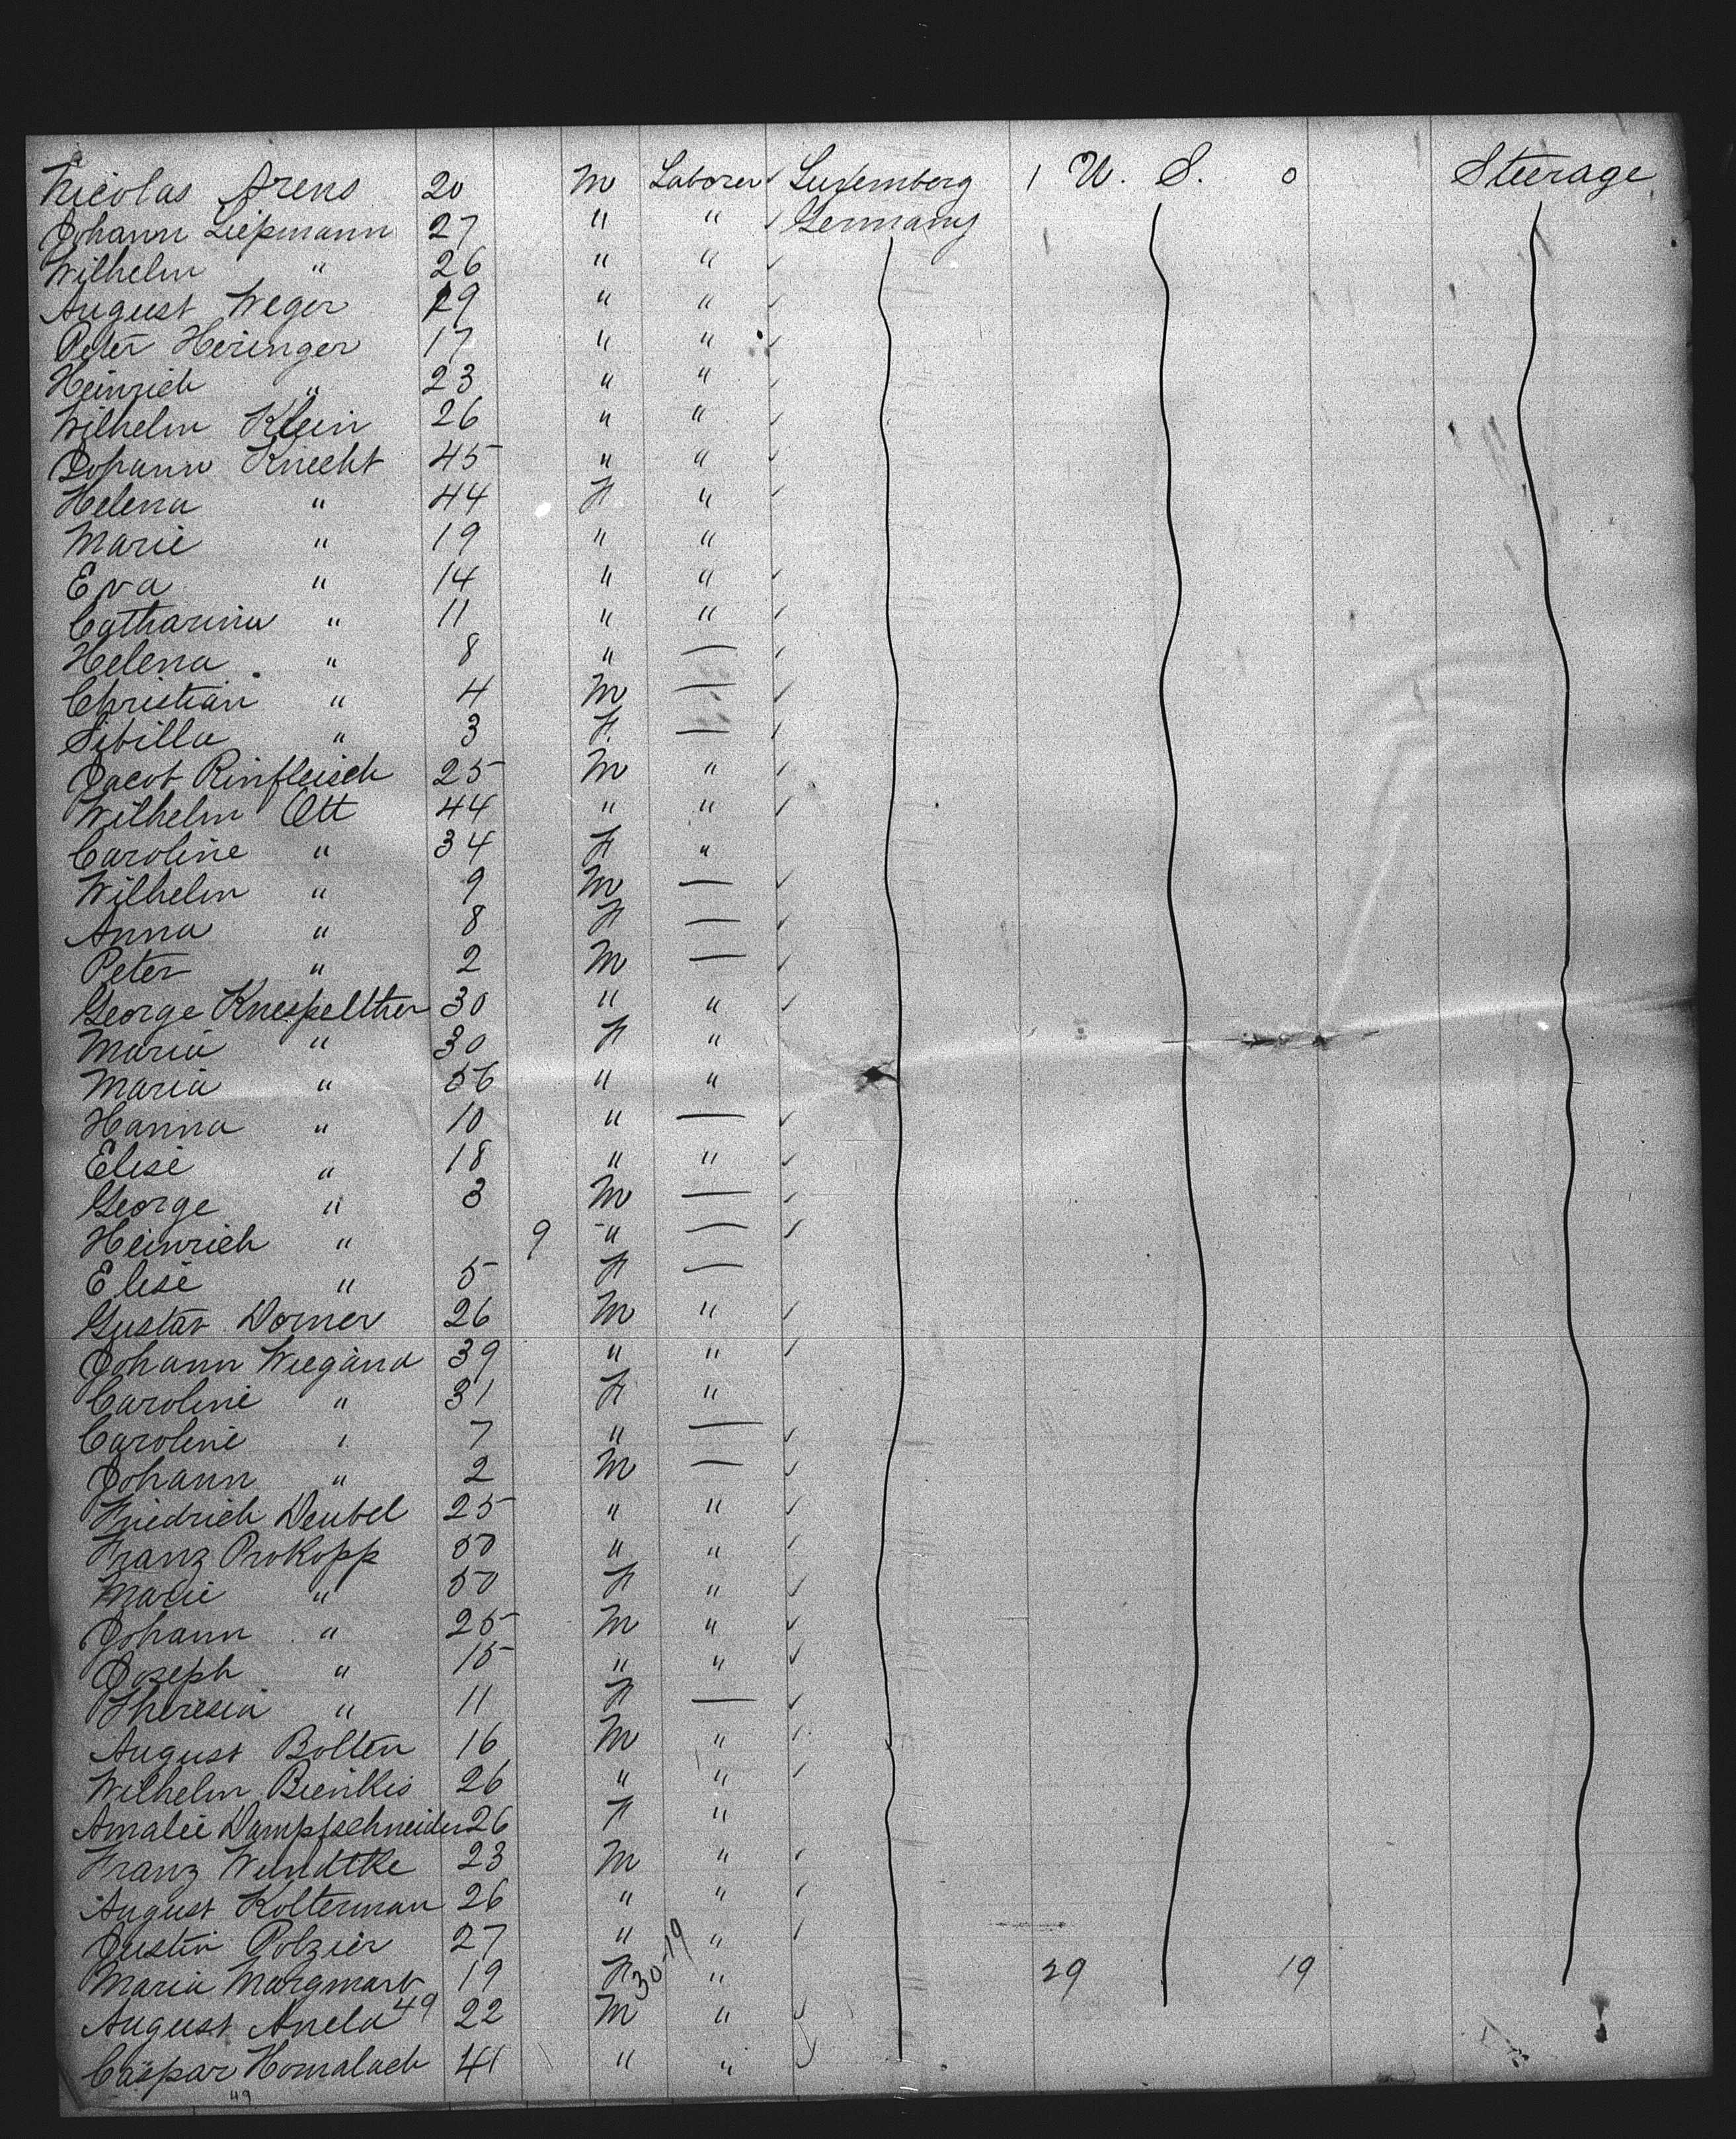 Nicolas Arens 20 M Laborer Luxemberg 1 U. S. 0 Steerage
Johann Liepmann 27 " " Germany
Wilhelm " 26 " "
August Weger 29 " "
Peter Heringer 17 " "
Heinrich " 23 " "
Wilhelm Klein 26 " "
Johann Knecht 45 " "
Helena " 44 F "
Marie " 19 " "
Eva " 14 " "
Catharina " 11 " "
Helena " 8 " —
Christian " 4 M —
Sibilla " 3 F —
Jacob Rinfleisch 25 M "
Wilhelm Ott 44 " "
Caroline " 34 F "
Wilhelm " 9 M —
Anna " 8 F —
Peter " 2 M —
George Knespelther 30 " "
Maria " 30 F "
Maria " 56 " "
Hanna " 10 " —
Elise " 18 " "
George " 3 M —
Heinrich " 9 " —
Elise " 5 F —
Gustav Dorner 26 M "
Johann Wiegand 39 " "
Caroline " 31 F "
Caroline " 7 " —
Johann " 2 M —
Friedrich Deubel 25 " "
Franz Prokopp 50 " "
Marie " 50 F "
Johann " 25 M "
Joseph " 15 " "
Theresia " 11 F —
August Bolten 16 M "
Wilhelm Bienkis 26 " "
Amalie Dampfschneider 26 F "
Franz Wendtke 23 M "
August Kolterman 26 " "
Justin Polzier 27 " "
Maria 19 F 30-19 " 29 19
August Anela 49 22 M "
Caspar Homalach 41 " "
49